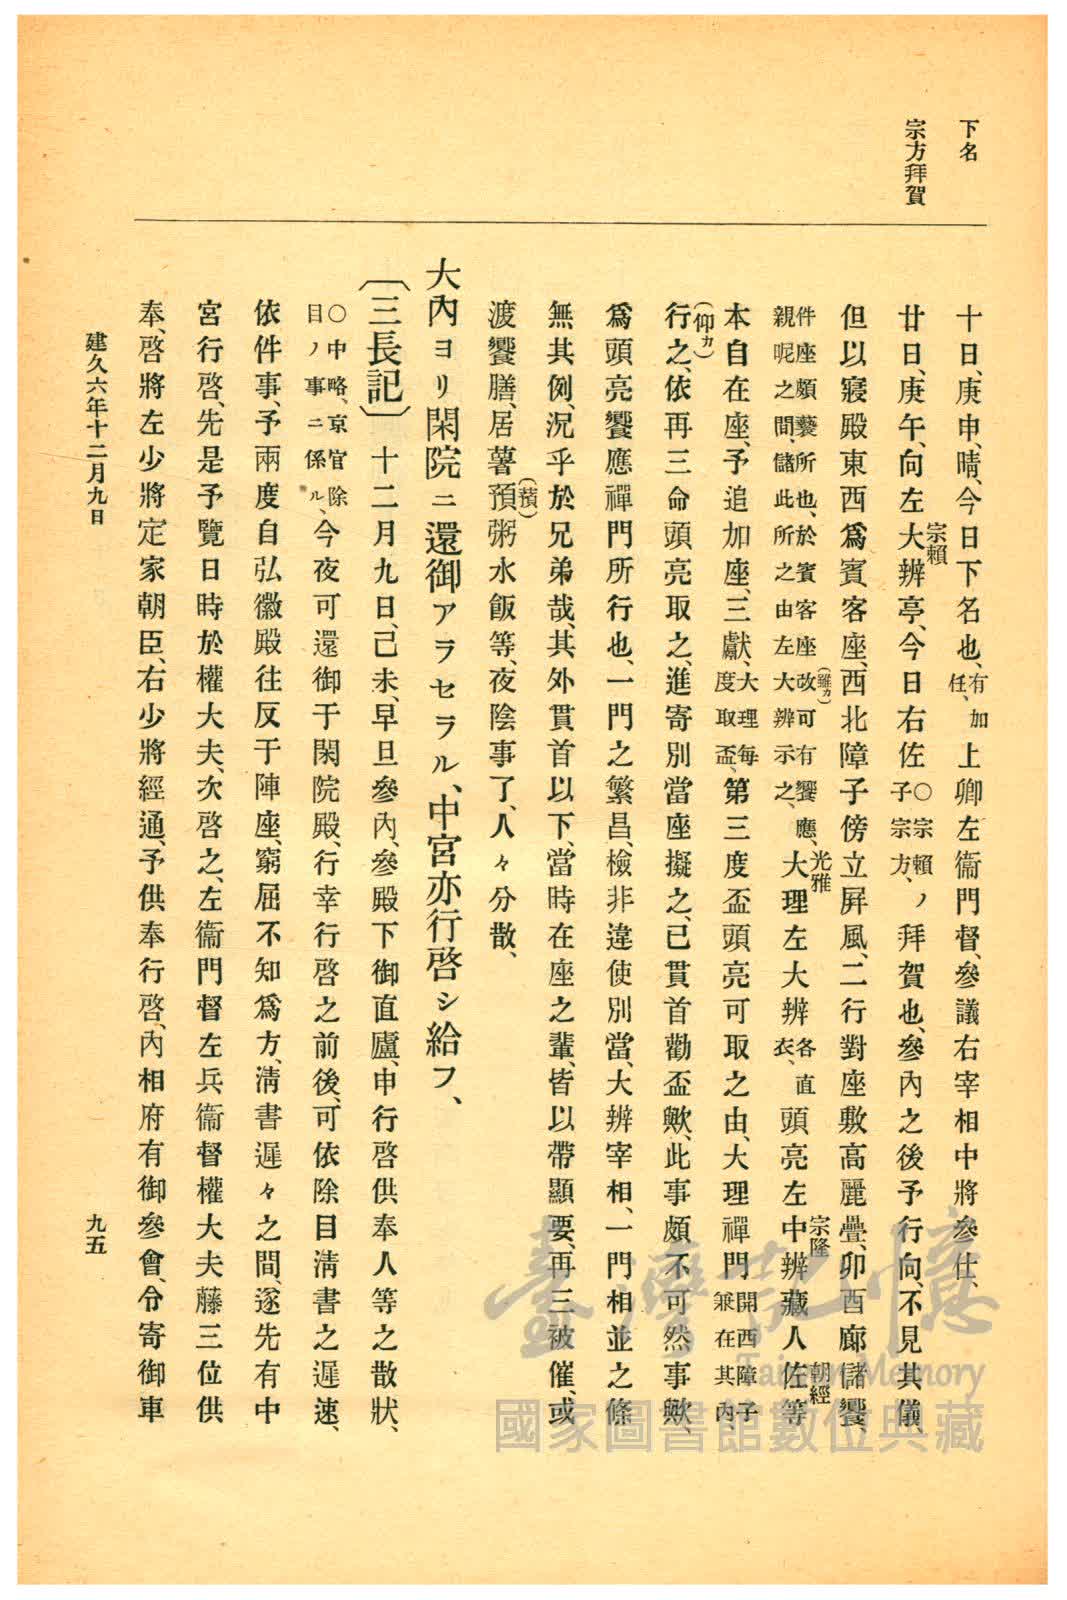 下名
宗方拜賀
十日、庚申、晴、今日下名也、有加任、上卿左衞門督、參議右宰相中將參仕、
廿日、庚午、向左大辨宗賴亭、今日右佐○宗賴ノ子宗方、拜賀也、參內之後予行向、不見其儀、
但以寢殿東西爲賓客座、西北障子傍立屛風、二行對座敷高麗疊、卯酉廊儲饗、
件座頗褻所也、於賓客座改(雖カ)可有饗應、親昵之間、儲此所之由左大辨示之、大理光雅左大辨各直衣、頭亮左中辨宗隆藏人佐朝經等
本自在座、予追加座、三獻、大理每度取盃、第三度盃頭亮可取之由、大理禪門開西障子、兼在其內、
行(仰カ)之、依再三命頭亮取之、進寄別當座擬之、已貫首勸盃歟、此事頗不可然事歟、
爲頭亮饗應禪門所行也、一門之繁昌、檢非違使別當、大辨宰相、一門相並之條
無其例、況乎於兄弟哉、其外貫首以下、當時在座之輩、皆以帶顯要、再三被催、或
渡饗膳、居薯預(蕷)粥水飯等、夜陰事了、人々分散、
大內ヨリ閑院ニ還御アラセラル、中宮亦行啓シ給フ、
〔三長記〕十二月九日、己未、早旦參內、參殿下御直廬、申行啓供奉人等之散狀、
○中略、京官除目ノ事ニ係ル、今夜可還御于閑院殿、行幸行啓之前後、可依除目淸書之遲速、
依件事、予兩度自弘徽殿往反于陣座、窮屈不知爲方、淸書遲々之間、遂先有中
宮行啓、先是予覽日時於權大夫、次啓之、左衞門督左兵衞督權大夫藤三位供
奉、啓將左少將定家朝臣、右少將經通、予供奉行啓、內相府有御參會、令寄御車
建久六年十二月九日
九五
臺灣記憶
Taiwan Memory
國家圖書館數位典藏